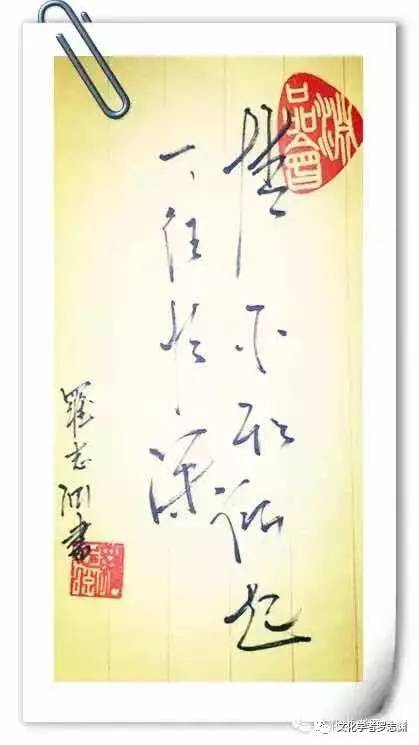 情不知所起
一往情深
羅志渊書
文化学者罗志渊